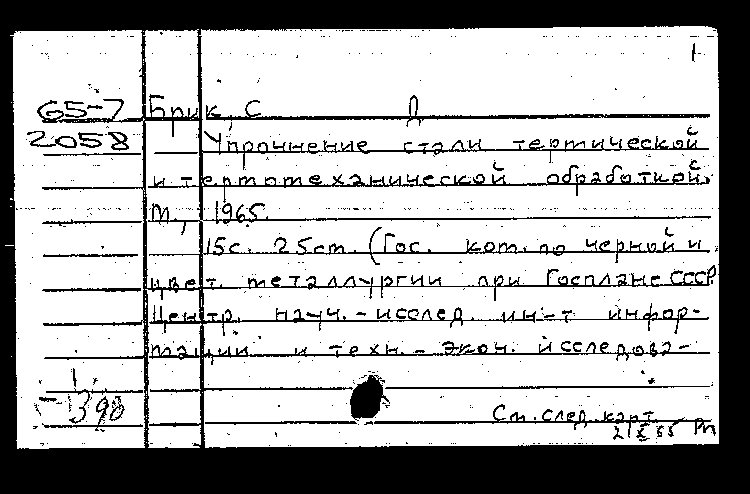 1
65-7 Брик, С Д
2058 Упрочнение стали термической
и термомеханической обработкой.
М., 1965.
15с. 25см. (Гос. ком. по черной и
цвет. металлургии при Госплане СССР
Центр. науч.-исслед. ин-т инфор-
мации и техн.-экон. исследова-
-1398
См. след. карт.
21 X 65